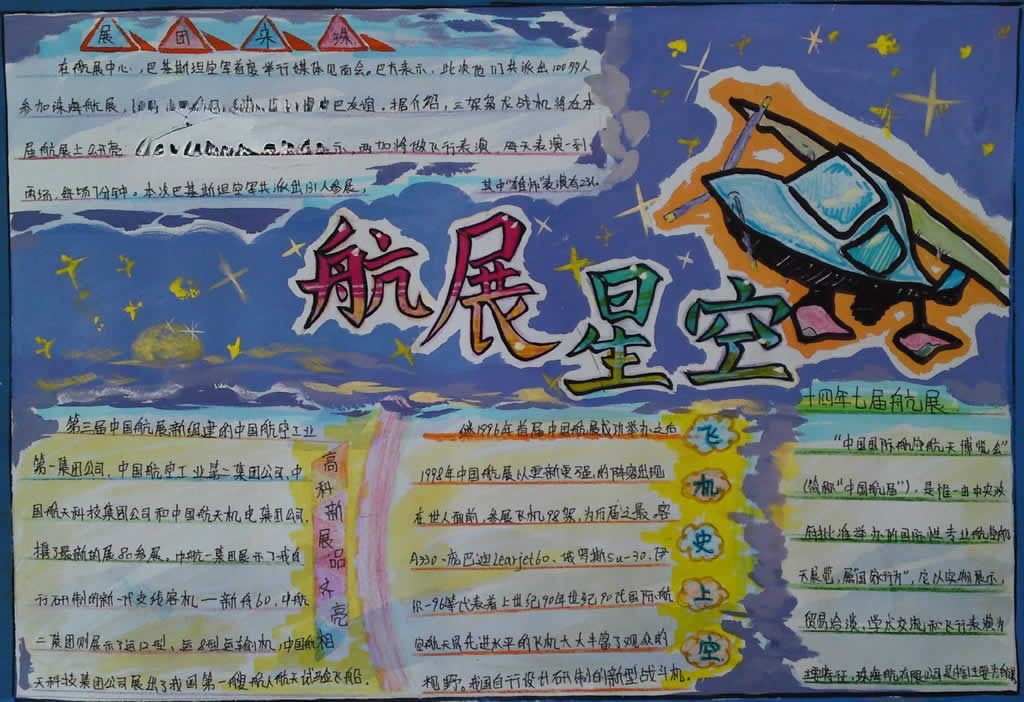 展团来珠
在航展中心，巴基斯坦空军首度举行媒体见面会。巴方表示，此次他们共派出100多人
参加珠海航展，中巴友谊。据介绍，三架枭龙战机将在本
届航展上公开亮示，两加将做飞行表演，每天表演一到
两场，每场7分钟。本次巴基斯坦空军共派出131人参展，其中"雄狮"表演者23人
航展星空
第三届中国航展新组建的中国航空工业
第一集团公司、中国航空工业第二集团公司、中
国航天科技集团公司和中国航天机电集团公司，
携最新的展品参展，中航一集团展示了我自
行研制的新一代支线客机——新舟60，中航
二集团则展示了运12型、运8型运输机，中国航
天科技集团公司展出了我国第一艘航人航天试验飞船．
高科新展品齐亮相
继1996年首届中国航展成功举办之后
1998年中国航展以更新更强的阵容出现
在世人面前，参展飞机98架，为历届之最。客
A330、庞巴迪Learjet60、俄罗斯Su-30、伊
尔-96等代表着上世纪90年世纪90代国际航
空航天界先进水平的飞机大大丰富了观众的
视野。我国自行设计研制的新型战斗机．
飞机史上空
十四年七届航展
"中国国际航空航天博览会"
(简称"中国航届")，是惟一由中央政
府批准举办的国际性专业航空航
天展览，属国家行为"，它以实物展示，
贸易洽谈，学术交流和飞行表演为
主要特征，珠海航有限公司是中国主要